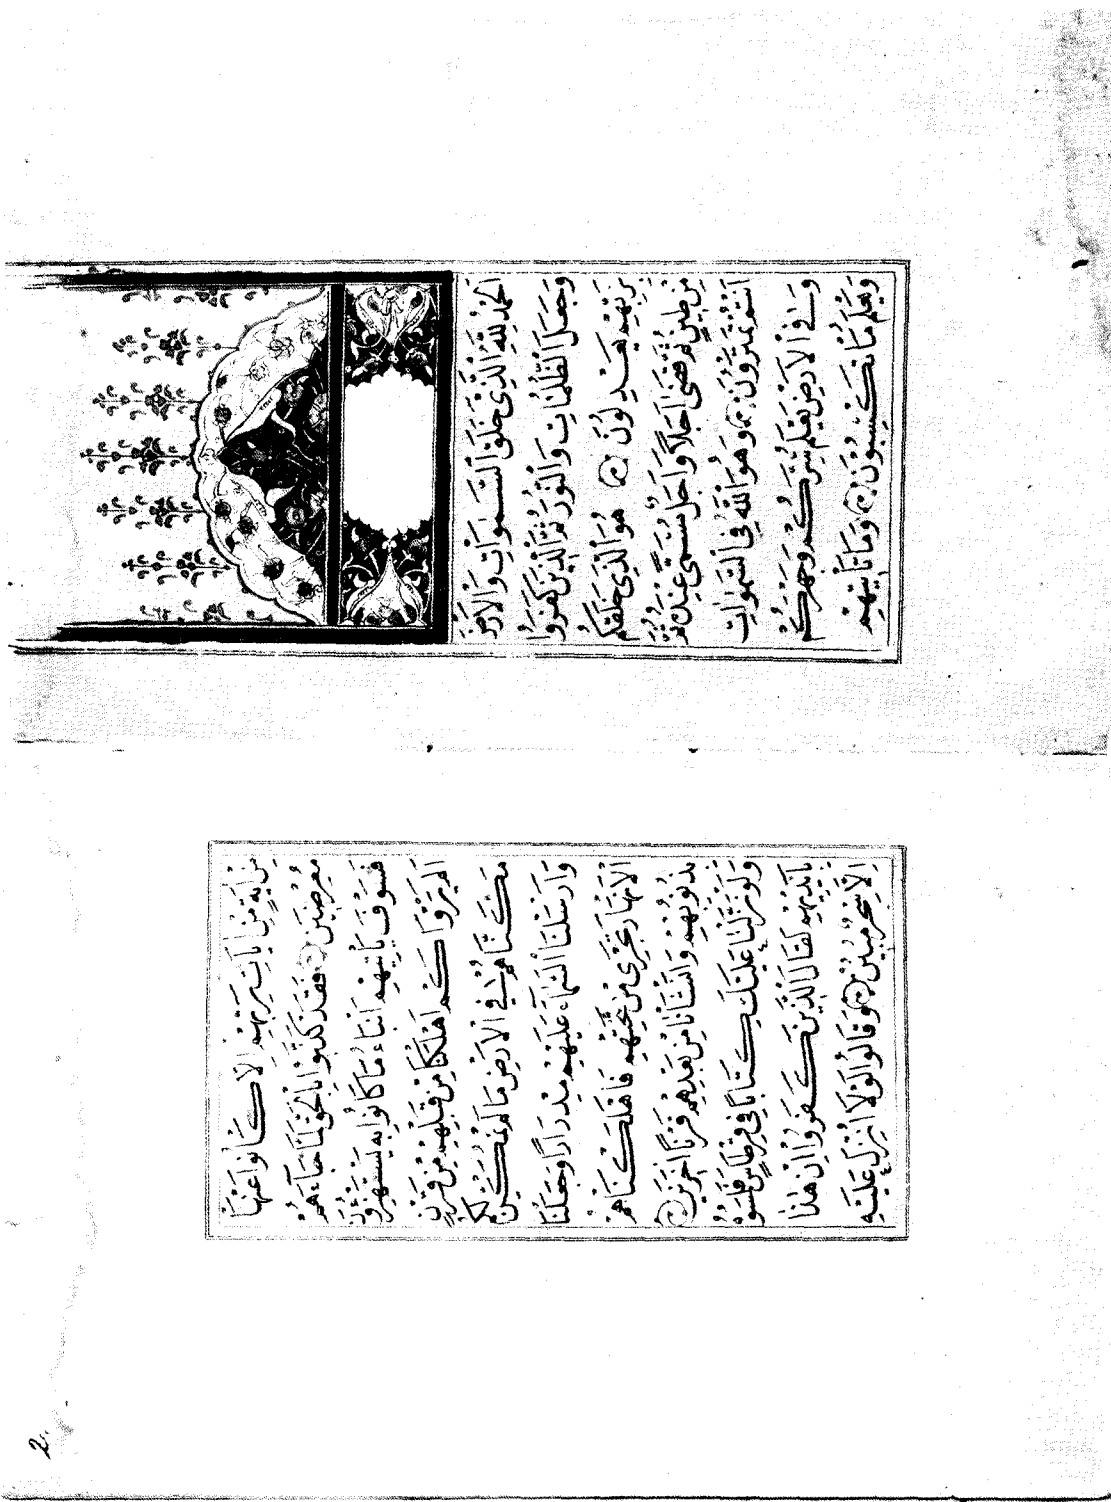 اَلْحَمْدُ لِلّٰهِ الَّذِى خَلَقَ السَّمٰوَاتِ وَالْاَرْضَ
وَجَعَلَ الظُّلُمَاتِ وَالنُّورَ ثُمَّ الَّذِينَ كَفَرُوا
بِرَبِّهِمْ يَعْدِلُونَ هُوَ الَّذِى خَلَقَكُمْ
مِنْ طِينٍ ثُمَّ قَضَى اَجَلًا وَاَجَلٌ مُسَمًّى عِنْدَهُ ثُمَّ
اَنْتُمْ تَمْتَرُونَ وَهُوَ اللّٰهُ فِى السَّمٰوَاتِ
وَفِى الْاَرْضِ يَعْلَمُ سِرَّكُمْ وَجَهْرَكُمْ
وَيَعْلَمُ مَا تَكْسِبُونَ وَمَا تَأْتِيهِمْ
مِنْ اٰيَةٍ مِنْ اٰيَاتِ رَبِّهِمْ اِلَّا كَانُوا عَنْهَا
مُعْرِضِينَ فَقَدْ كَذَّبُوا بِالْحَقِّ لَمَّا جَاءَهُمْ
فَسَوْفَ يَأْتِيهِمْ اَنْبَاءُ مَا كَانُوا بِهِ يَسْتَهْزِؤُنَ
اَلَمْ يَرَوْا كَمْ اَهْلَكْنَا مِنْ قَبْلِهِمْ مِنْ قَرْنٍ
مَكَّنَّاهُمْ فِى الْاَرْضِ مَا لَمْ نُمَكِّنْ لَكُمْ
وَاَرْسَلْنَا السَّمَاءَ عَلَيْهِمْ مِدْرَارًا وَجَعَلْنَا
الْاَنْهَارَ تَجْرِى مِنْ تَحْتِهِمْ فَاَهْلَكْنَاهُمْ
بِذُنُوبِهِمْ وَاَنْشَأْنَا مِنْ بَعْدِهِمْ قَرْنًا اٰخَرِينَ
وَلَوْ نَزَّلْنَا عَلَيْكَ كِتَابًا فِى قِرْطَاسٍ فَلَمَسُوهُ
بِاَيْدِيهِمْ لَقَالَ الَّذِينَ كَفَرُوا اِنْ هٰذَا
اِلَّا سِحْرٌ مُبِينٌ وَقَالُوا لَوْلَا اُنْزِلَ عَلَيْهِ
2